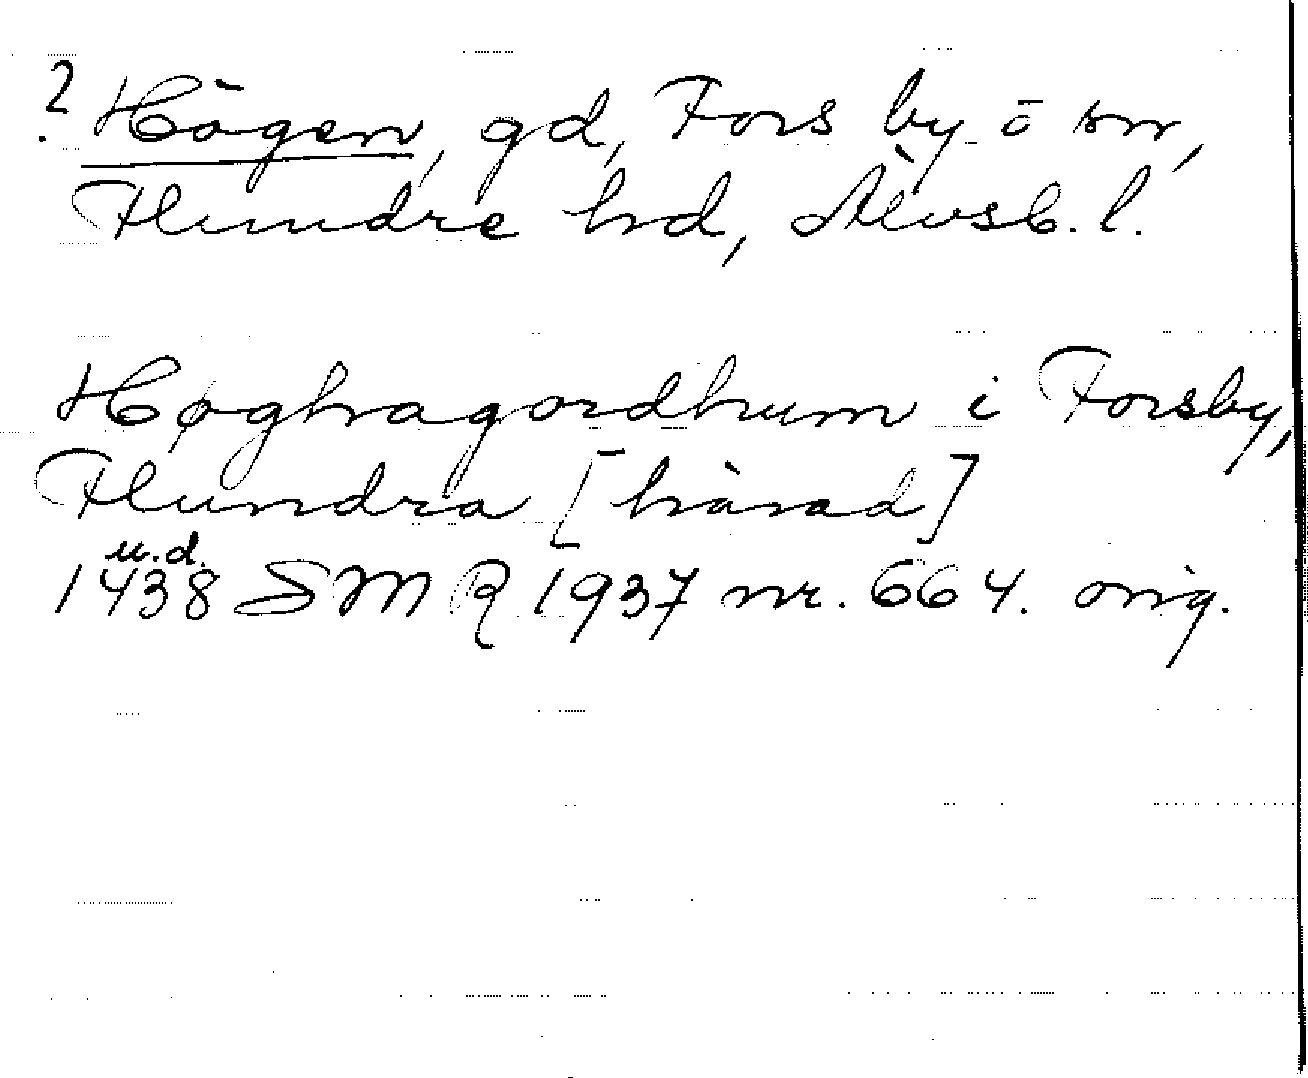 ? Högen, gd, Fors by o sn,
Flundre hd, Älvsb. l.
Høghagordhum i Forsby,
Flundra [härad]
u.d.
1438 SMR 1937 nr. 664. orig.